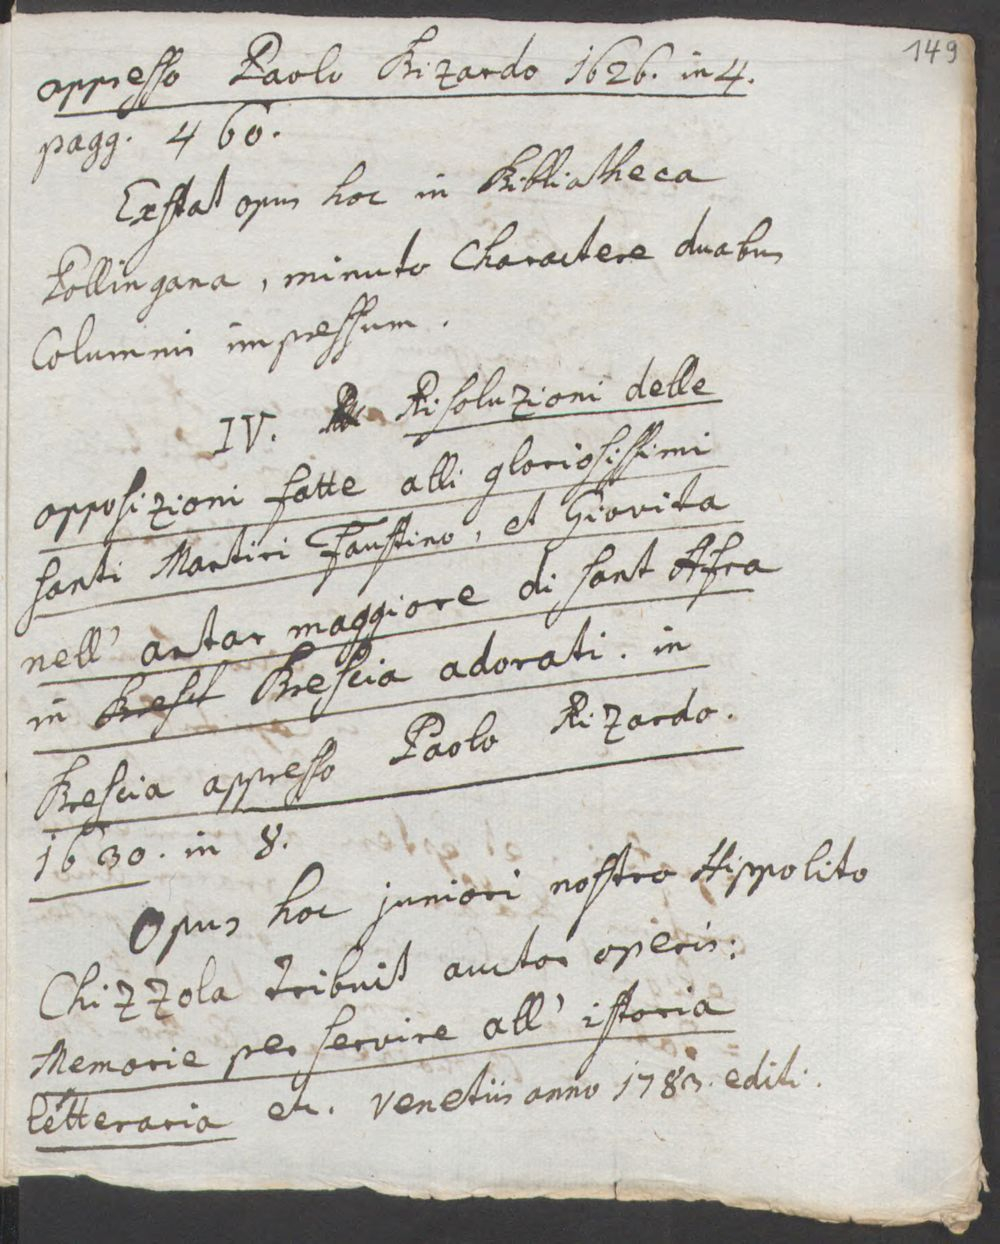 149
appresso Paolo Rizardo 1626. in 4.
pagg. 460.
Exstat opus hoc in Bibliatheca
Pollingana, minuto Charactere duabus
Columnis impressum.
IV. Risoluzioni delle
opposizioni fatte alli gloriosissimi
santi Martiri Faustino, et Giovita
nell' artar maggiore di sant Afra
in Bresci Brescia adorati. in
Brescia appresso Paolo Rizardo.
1630. in 8.
Opus hoc juniori nostro Hippolito
Chizzola tribuit auctor operis:
Memorie per servire all' istoria
letteraria etc. Venetiis anno 1783. editi.